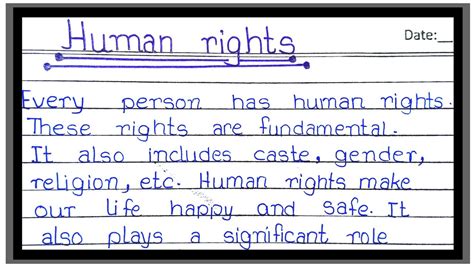 Human rights
Date:__
Every person has human rights.
These rights are fundamental.
It also includes caste, gender,
religion, etc. Human rights make
our life happy and safe. It
also plays a significant role